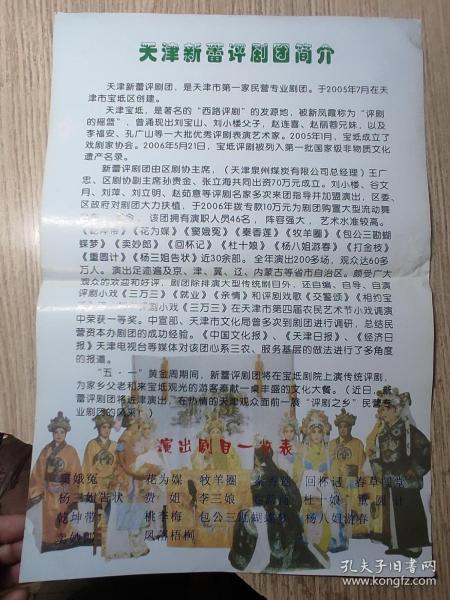 天津新蕾评剧团简介
天津新蕾评剧团，是天津市第一家民营专业剧团。于2005年7月在天
津市宝坻区创建。
天津宝坻，是著名的“西路评剧”的发源地，被新凤霞称为“评剧
的摇篮”，曾涌现出刘宝山、刘小楼父子，赵连喜、赵丽蓉兄妹，以及
李福安、孔广山等一大批优秀评剧表演艺术家。2005年1月，宝坻成立了
戏剧家协会。2006年5月21日，宝坻评剧被列入第一批国家级非物质文化
遗产名录。
新蕾评剧团由区剧协主席，（天津泉州煤炭有限公司总经理）王广
忠、区剧协副主席孙贵金、张立海共同出资70万元成立。刘小楼、谷文
月、刘萍、刘立明、赵茹意等评剧名家多次来团指导并加盟演出，区委、
区政府对剧团大力扶植，于2006年拨专款10万元为剧团购置大型流动舞
该团拥有演职人员46名，阵容强大，艺术水准较高。
《花为媒》《窦娥冤》《秦香莲》《牧羊圈》《包公三勘蝴
蝶梦》《卖妙郎》《回杯记》《杜十娘》《杨八姐游春》《打金枝》
《重圆计》《杨三姐告状》近30余部。全年演出200多场，观众达60多
万人。演出足迹遍及京、津、冀、辽、内蒙古等省市自治区。颇受广大
观众的欢迎和好评，剧团除排演大型传统剧目外，还自编、自导、自演
评剧小戏《三万三》《就业》《亲情》和评剧戏歌《交警颂》《相约宝
《三万三》在天津市第四届农民艺术节小戏调演
中荣获一等奖。中宣部、天津市文化局曾多次到剧团进行调研，总结民
营资本办剧团的成功经验。《中国文化报》、《天津日报》、《经济日
报》天津电视台等媒体对该团心系三农、服务基层的做法进行了多角度
的报道。
“五·一”黄金周期间，新蕾评剧团将在宝坻剧院上演传统评剧，
为家乡父老和来宝坻观光的游客奉献一桌丰盛的文化大餐。（近日，新
蕾评剧团将进津演出，在热情的天津观众面前一展“评剧之乡”民营专
业剧团的风采！）
演出剧目一览表
窦娥冤 花为媒 牧羊圈 回杯记
杨三姐告状 费姐 李三娘 杜十娘
乾坤带 桃李梅 包公三勘蝴蝶梦 杨八姐游春
卖妙郎 凤落梧桐
孔夫子旧书网
www.kongfz.com